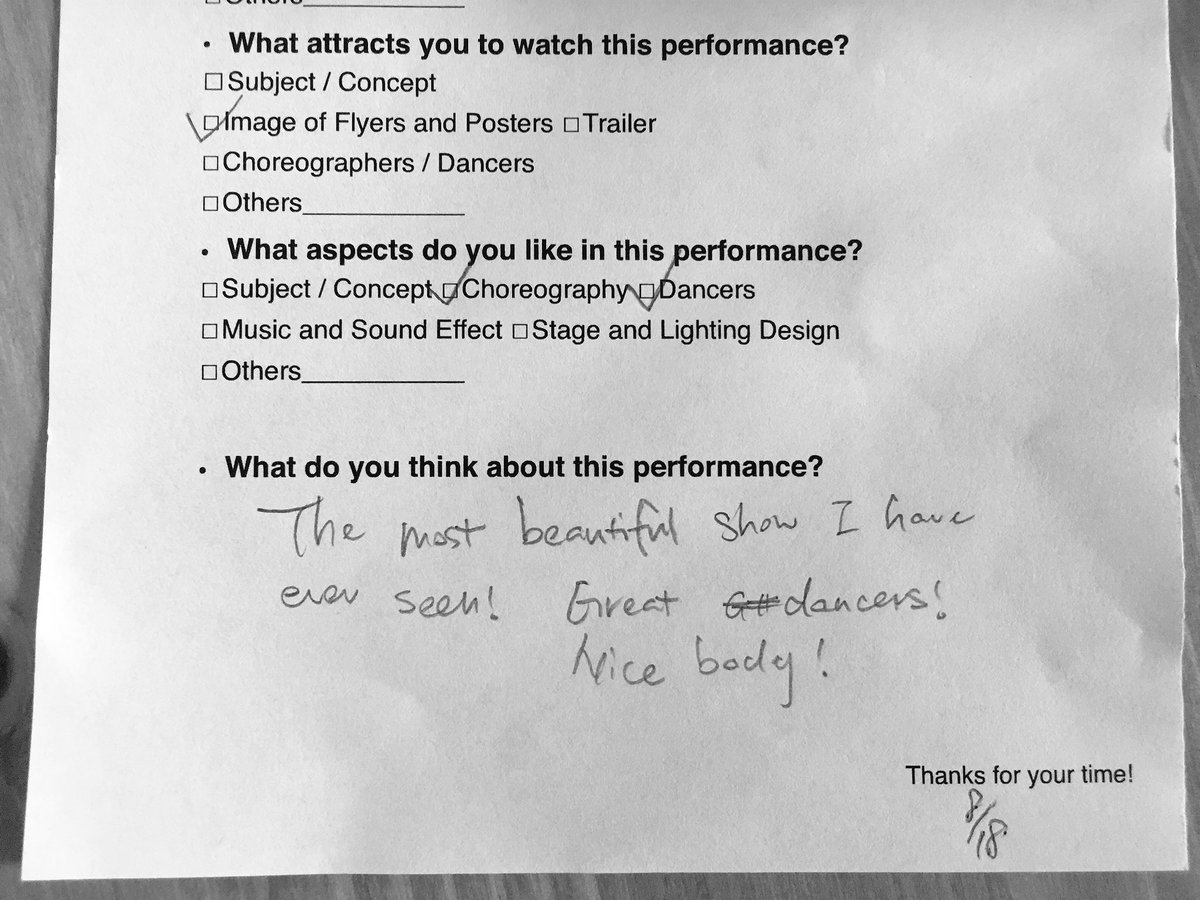 □Others____________
• What attracts you to watch this performance?
□Subject / Concept
☑Image of Flyers and Posters □Trailer
□Choreographers / Dancers
□Others____________
• What aspects do you like in this performance?
□Subject / Concept ☑Choreography ☑Dancers
□Music and Sound Effect □Stage and Lighting Design
□Others____________
• What do you think about this performance?
The most beautiful show I have
ever seen! Great dancers!
Nice body!
Thanks for your time!
8/18